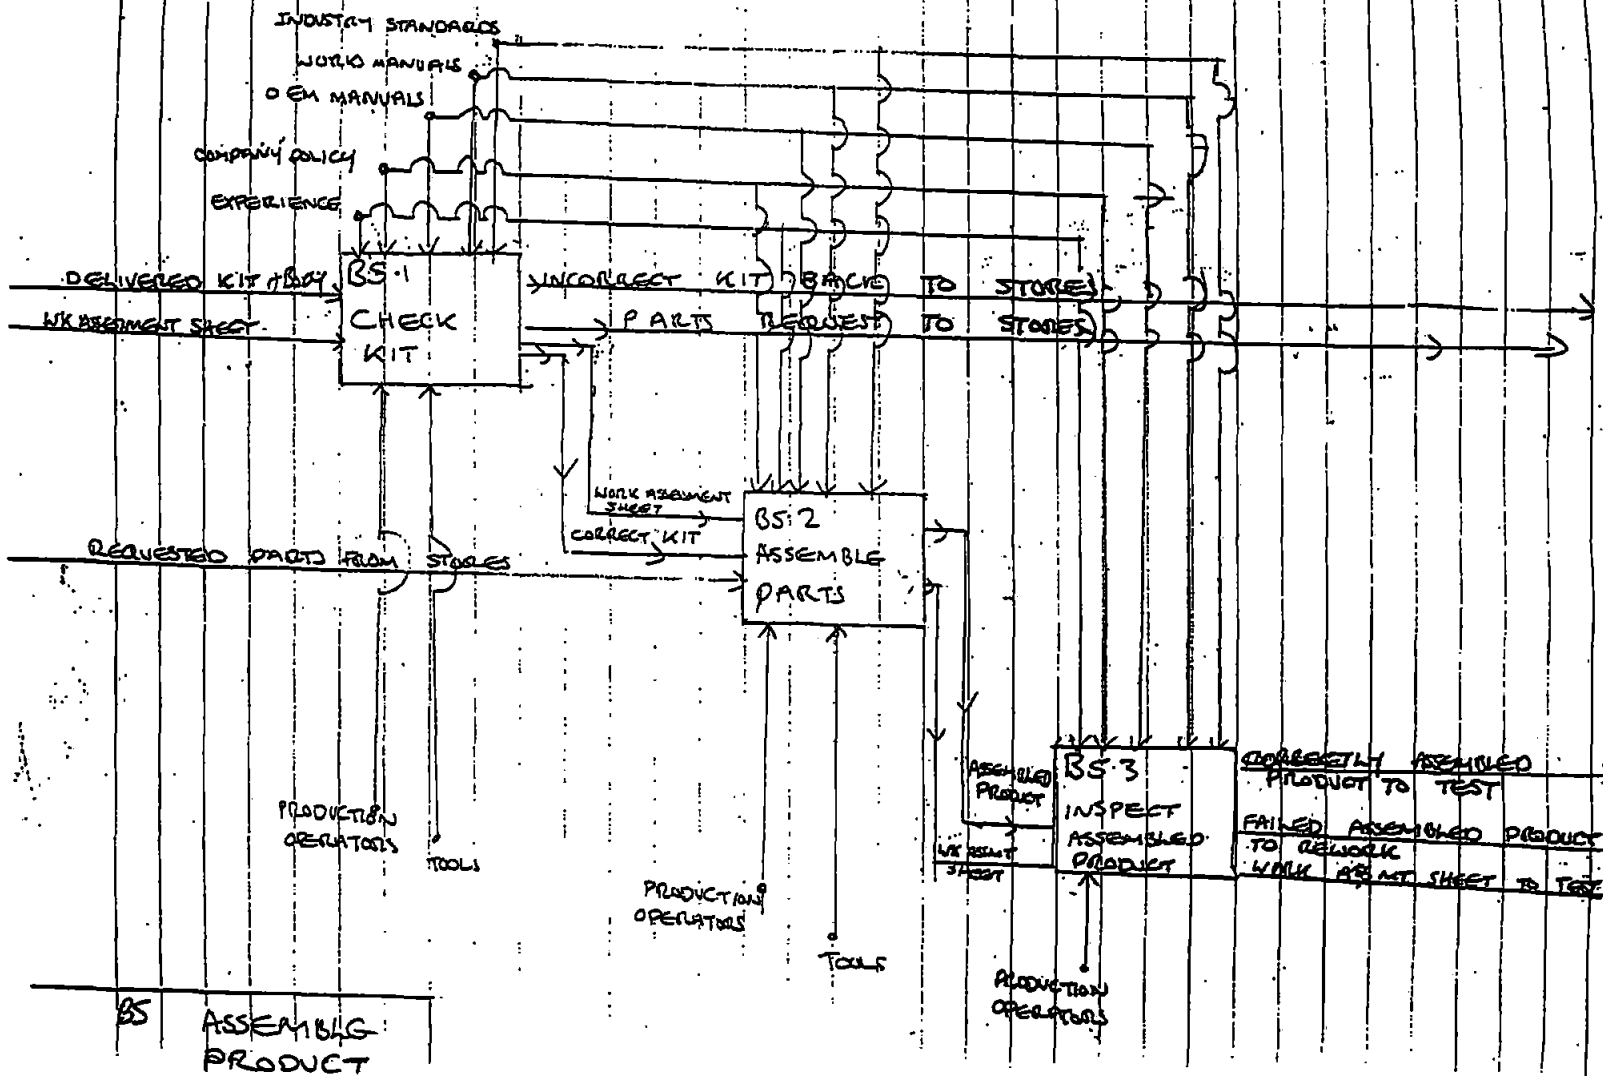 INDUSTRY STANDARDS
WORKS MANUALS
OEM MANUALS
COMPANY POLICY
EXPERIENCE
DELIVERED KIT + BODY
WK ASSESMENT SHEET
B5.1
CHECK
KIT
INCORRECT KIT BACK TO STORES
PARTS REQUEST TO STORES
WORK ASSESMENT
SHEET
CORRECT KIT
REQUESTED PARTS FROM STORES
B5.2
ASSEMBLE
PARTS
PRODUCTION
OPERATORS
TOOLS
PRODUCTION
OPERATORS
TOOLS
ASSEMBLED
PRODUCT
WK ASSMT
SHEET
B5.3
INSPECT
ASSEMBLED
PRODUCT
CORRECTLY ASSEMBLED
PRODUCT TO TEST
FAILED ASSEMBLED PRODUCT
TO REWORK
WORK ASSMT SHEET TO TEST
PRODUCTION
OPERATORS
B5
ASSEMBLE
PRODUCT